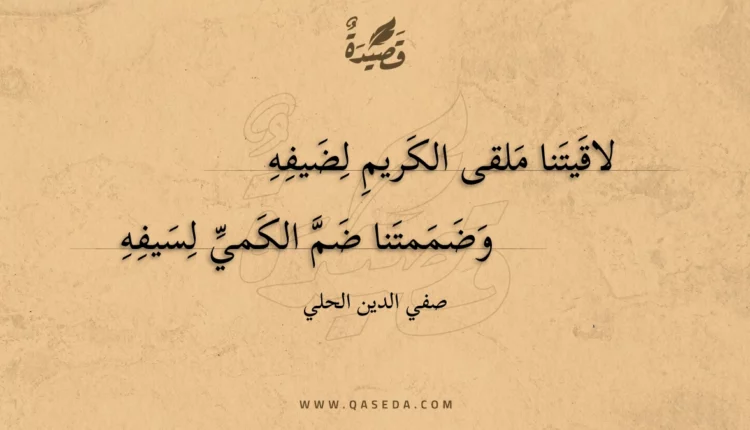 قَصِيْدَةٌ
لاقَيتَنا مَلقى الكَريمِ لِضَيفِهِ
وَضَمَمتَنا ضَمَّ الكَميِّ لِسَيفِهِ
صفي الدين الحلي
WWW.QASEDA.COM